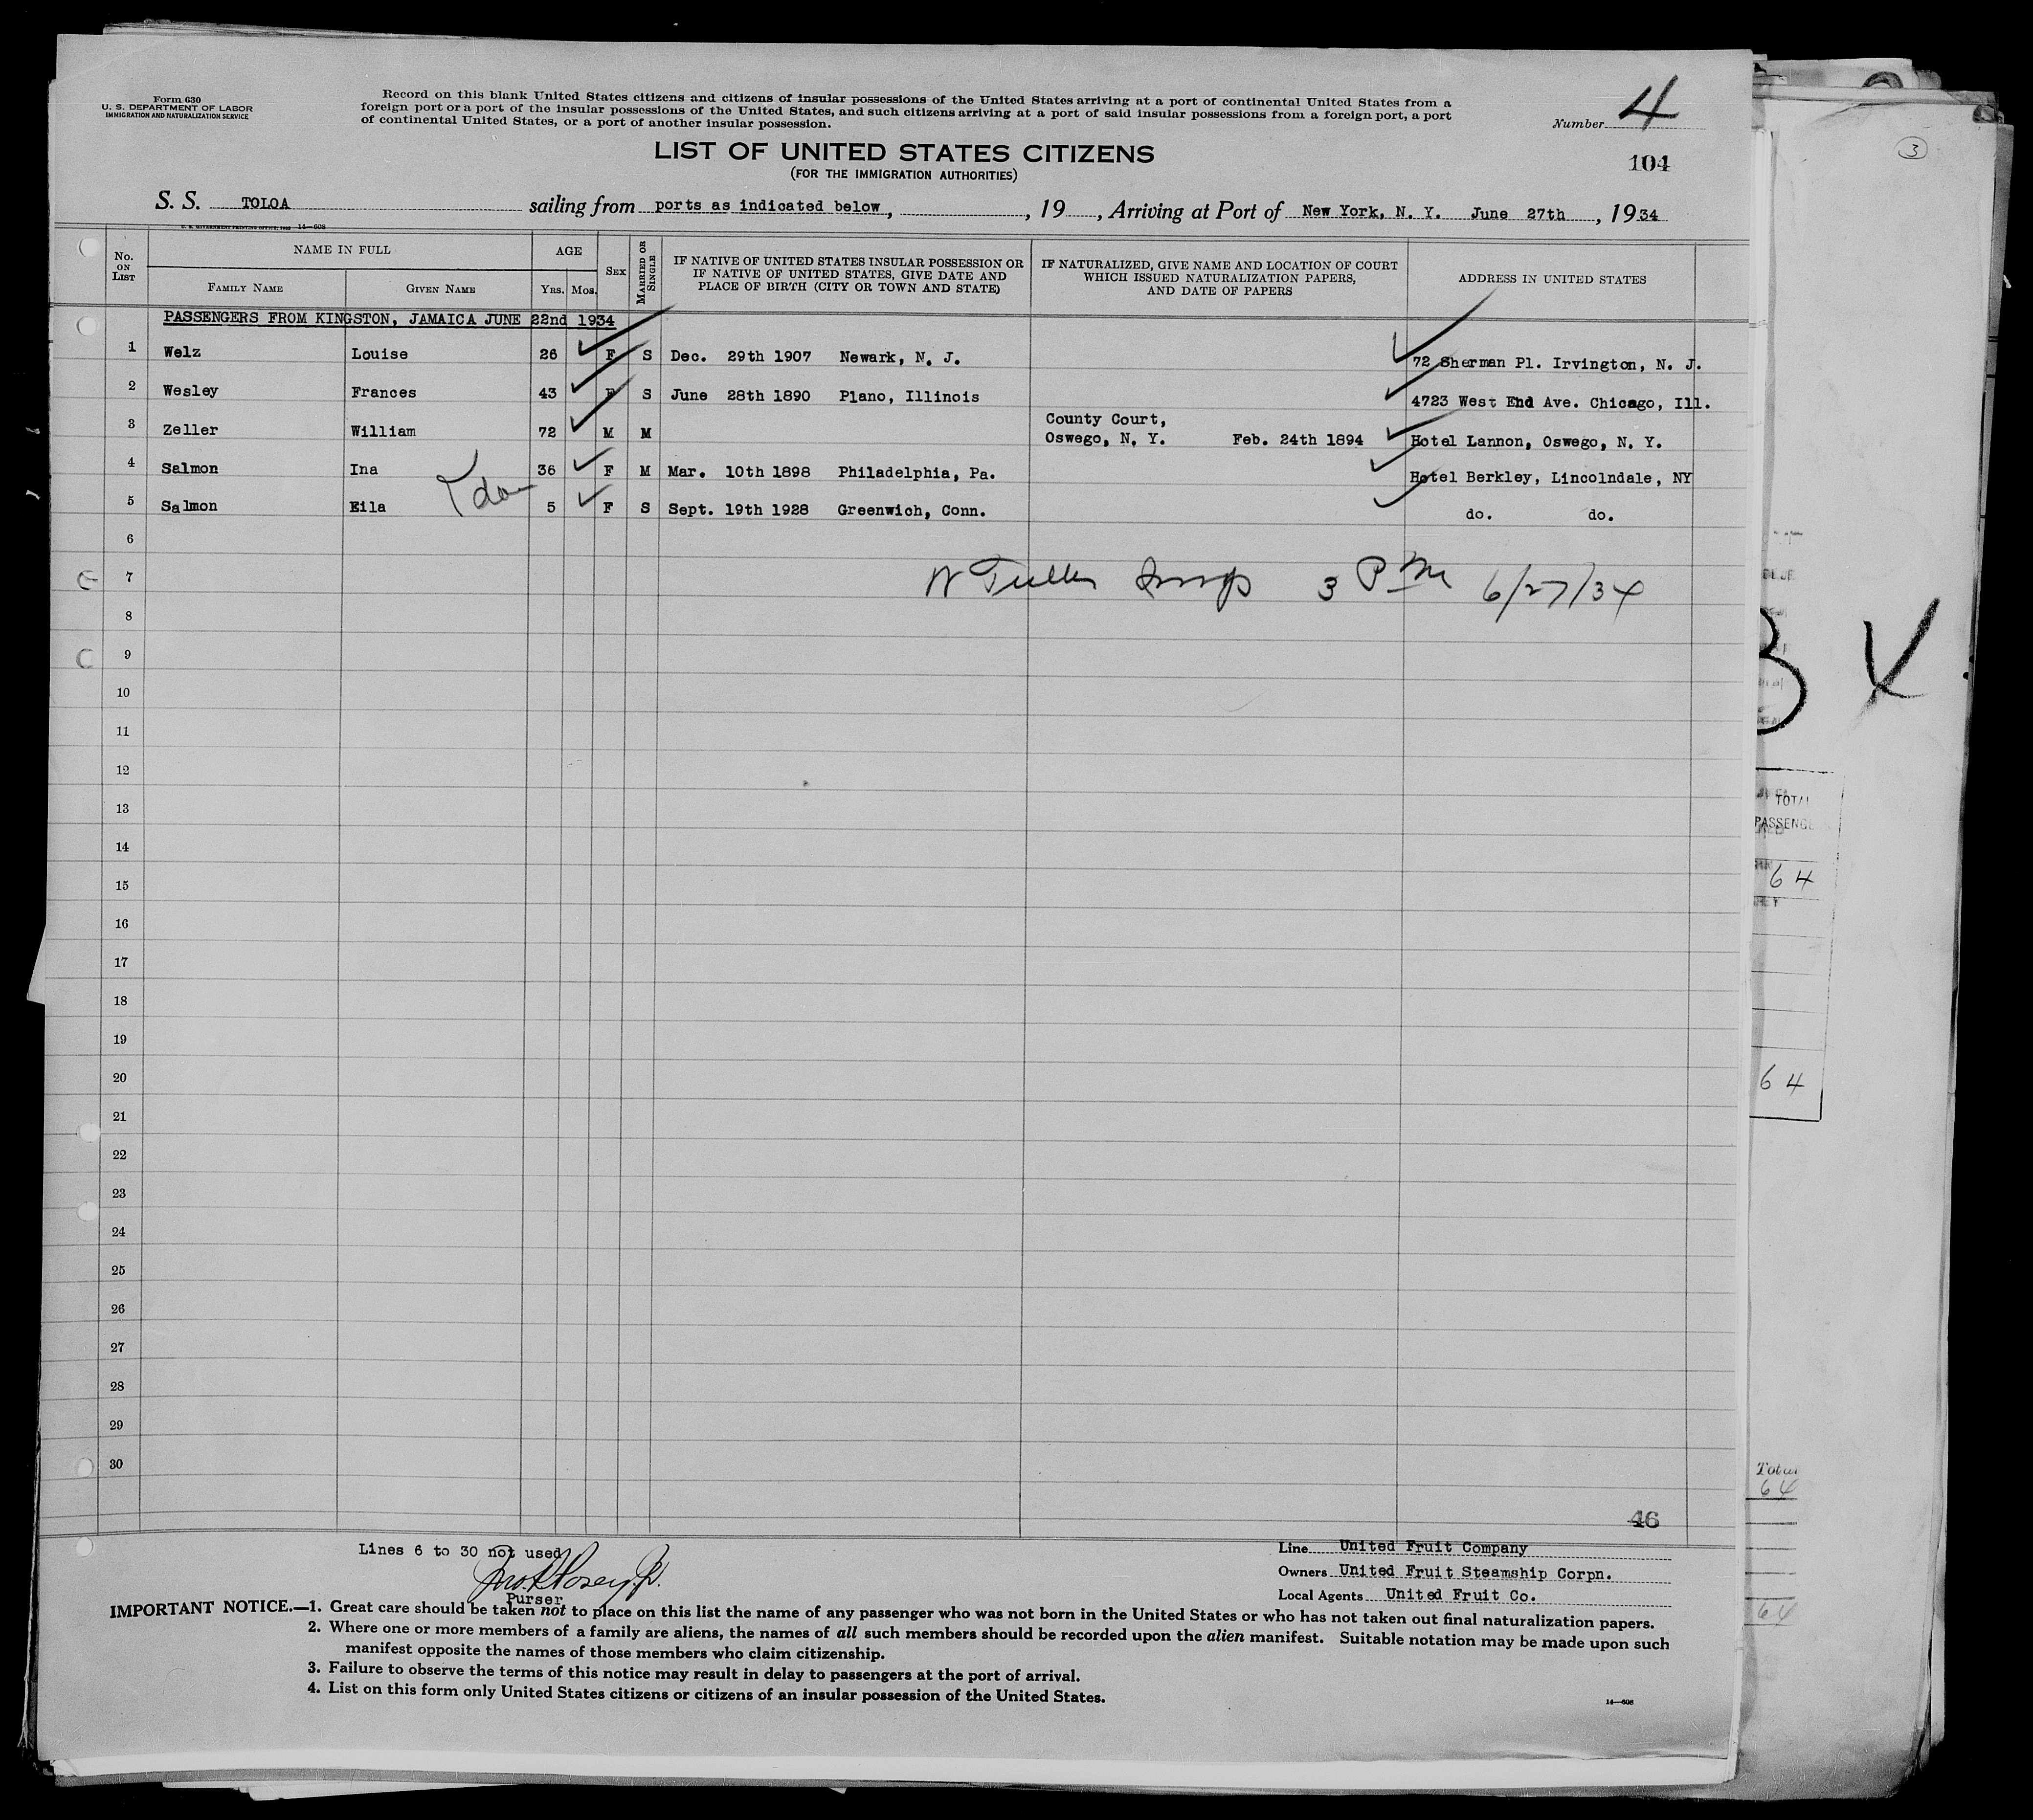 Form 630
U. S. DEPARTMENT OF LABOR
IMMIGRATION AND NATURALIZATION SERVICE
Record on this blank United States citizens and citizens of insular possessions of the United States arriving at a port of continental United States from a
foreign port or a port of the insular possessions of the United States, and such citizens arriving at a port of said insular possessions from a foreign port, a port
of continental United States, or a port of another insular possession.
Number 4
LIST OF UNITED STATES CITIZENS
(FOR THE IMMIGRATION AUTHORITIES)
104
3
S. S. TOLOA sailing from ports as indicated below, , 19 , Arriving at Port of New York, N. Y. June 27th , 1934
14—608
No. ON LIST
NAME IN FULL
FAMILY NAME
GIVEN NAME
AGE
YRS.
MOS.
SEX
MARRIED OR SINGLE
IF NATIVE OF UNITED STATES INSULAR POSSESSION OR
IF NATIVE OF UNITED STATES, GIVE DATE AND
PLACE OF BIRTH (CITY OR TOWN AND STATE)
IF NATURALIZED, GIVE NAME AND LOCATION OF COURT
WHICH ISSUED NATURALIZATION PAPERS,
AND DATE OF PAPERS
ADDRESS IN UNITED STATES
PASSENGERS FROM KINGSTON, JAMAICA JUNE 22nd 1934
1 Welz Louise 26 F S Dec. 29th 1907 Newark, N. J. 72 Sherman Pl. Irvington, N. J.
2 Wesley Frances 43 F S June 28th 1890 Plano, Illinois 4723 West End Ave. Chicago, Ill.
3 Zeller William 72 M M County Court,
Oswego, N. Y. Feb. 24th 1894 Hotel Lannon, Oswego, N. Y.
4 Salmon Ina 36 F M Mar. 10th 1898 Philadelphia, Pa. Hotel Berkley, Lincolndale, NY
5 Salmon Eila 5 F S Sept. 19th 1928 Greenwich, Conn. do. do.
6
7
3 PM 6/27/34
8
9
10
11
12
13
14
15
16
17
18
19
20
21
22
23
24
25
26
27
28
29
30
4
TOTAL
64
64
Total
64
64
46
Lines 6 to 30 not used
Purser
Line United Fruit Company
Owners United Fruit Steamship Corpn.
Local Agents United Fruit Co.
IMPORTANT NOTICE.—1. Great care should be taken not to place on this list the name of any passenger who was not born in the United States or who has not taken out final naturalization papers.
2. Where one or more members of a family are aliens, the names of all such members should be recorded upon the alien manifest. Suitable notation may be made upon such
manifest opposite the names of those members who claim citizenship.
3. Failure to observe the terms of this notice may result in delay to passengers at the port of arrival.
4. List on this form only United States citizens or citizens of an insular possession of the United States.
14—608